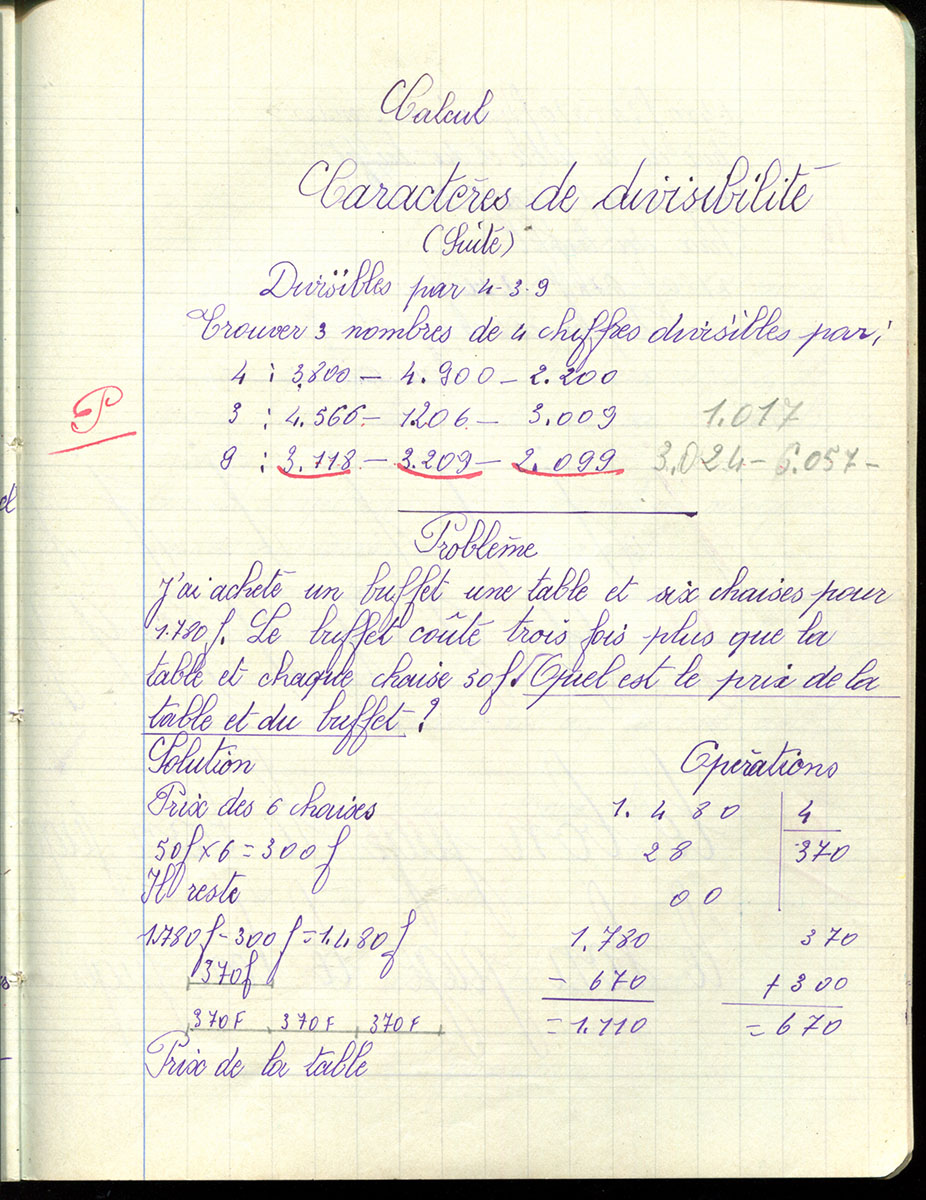 Calcul
Caractères de divisibilité
(Suite)
Divisibles par 4-3-9
Trouver 3 nombres de 4 chiffres divisibles par :
4 : 3.800 — 4.900 — 2.200
3 : 4.566 — 1.206 — 3.009 1.017
P
9 : 3.118 — 3.209 — 2.099 3.024 — 6.057 —
Problème
J'ai acheté un buffet une table et six chaises pour
1.780 f. Le buffet coûte trois fois plus que la
table et chaque chaise 50 f. Quel est le prix de la
table et du buffet ?
Solution Opérations
Prix des 6 chaises 1.480 4
50f × 6 = 300 f 28 370
Il reste 00
1.780 f - 300 f = 1.480 f 1.780 370
370f - 670 + 300
370 F 370 F 370 F = 1.110 = 670
Prix de la table